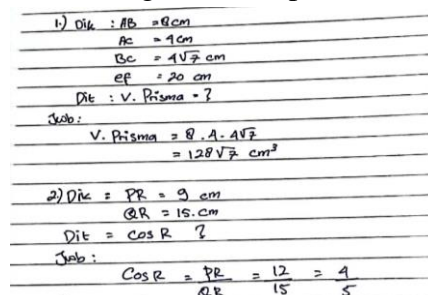 1.) Dik : AB = 8cm
AC = 4cm
BC = 4√7 cm
ef = 20 cm
Dit : V. Prisma = ?
Jwb :
V. Prisma = 8 . 4 . 4√7
= 128√7 cm³
2) Dik : PR = 9 cm
QR = 15.cm
Dit = cos R ?
Jwb :
Cos R = PR/QR = 12/15 = 4/5